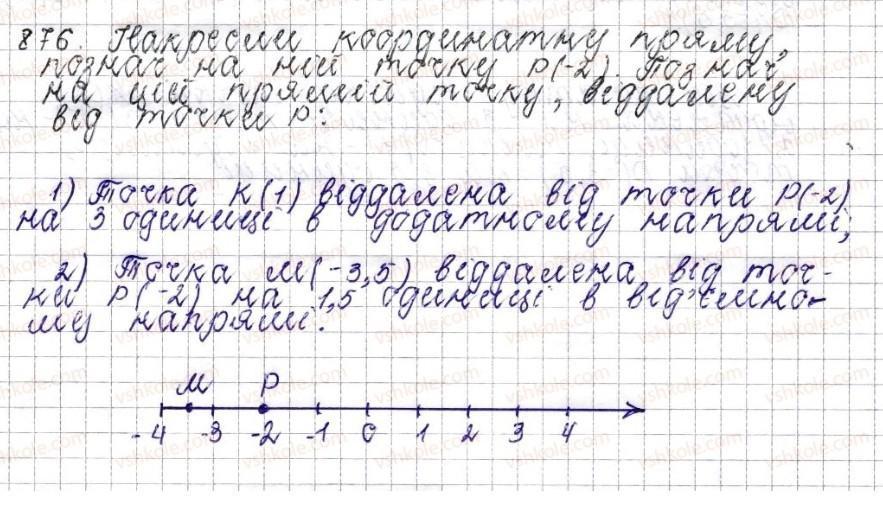 876. Накресли координатну пряму,
познач на ній точку P(-2). Познач
на цій прямій точку, віддалену
від точки P:
1) Точка K(1) віддалена від точки P(-2)
на 3 одиниці в додатному напрямі;
2) Точка M(-3,5) віддалена від точ-
ки P(-2) на 1,5 одиниці в від'ємно-
му напрямі.
M P
-4 -3 -2 -1 0 1 2 3 4